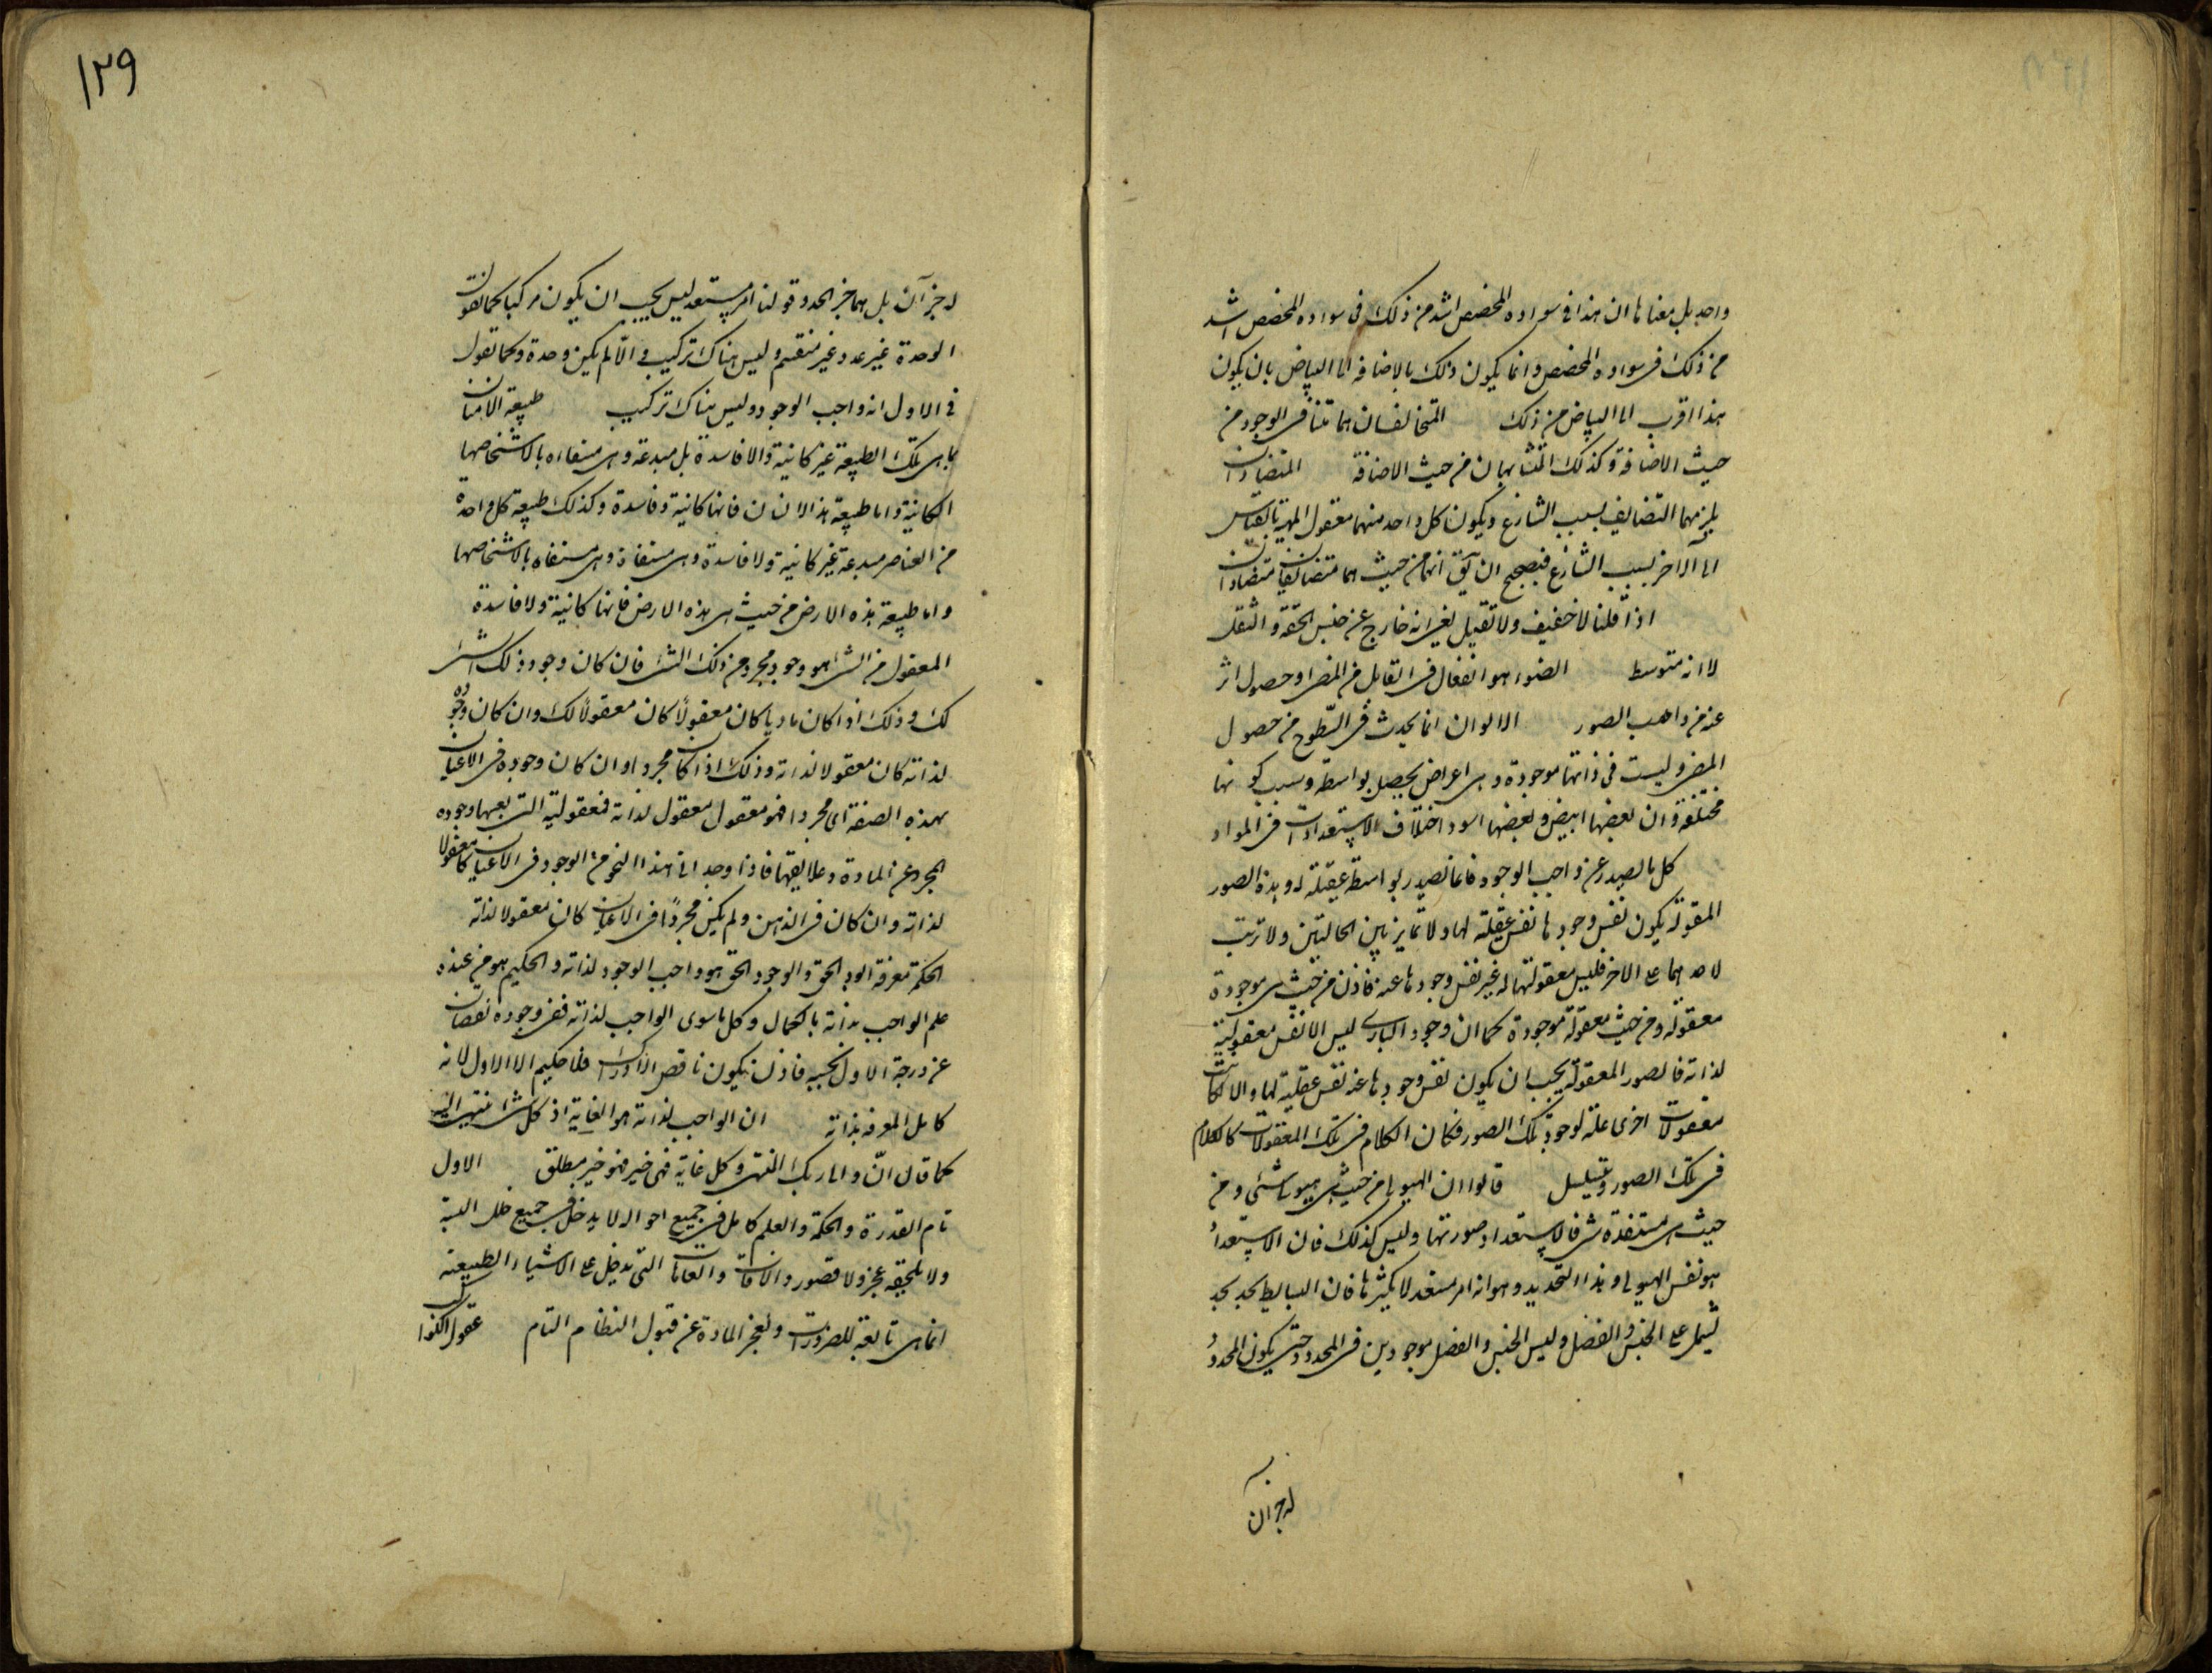 واحد بل معناها ان هذا فى سواده المخصص اشد من ذلك فى سواده المخصص اشد
من ذلك فى سواده المخصص وانما يكون ذلك بالاضافة الى البياض بان يكون
هذا اقرب الى البياض من ذلك المتخالفان هما متنا فى الوجود من
حيث الاضافة وكذلك المتشابهان من حيث الاضافة المتضادان
يلزمهما التضايف بسبب التنازع ويكون كل واحد منهما معقول المهية بالقياس
الى الآخر بسبب التنازع فيصح ان يق انهما من حيث هما متضايفان متضادان
اذا قلنا لا خفيف ولا ثقيل يعنى انه خارج عن جنس الخفة والثقل
لا انه متوسط الضوء هو انفعال فى القابل من المضىء او حصول اثر
عنه من واهب الصور الالوان انما يحدث فى السطوح من حصول
المضىء وليست فى ذاتها موجودة وهى اعراض يحصل بواسطة وسبب كونها
مختلفة وان بعضها ابيض وبعضها اسود اختلاف الاستعدادات فى المواد
كل ما يصدر عن واجب الوجود فانما يصدر بواسطة عقيلته له وهذه الصور
المعقولة يكون نفس وجودها نفس عقيلته لها ولا تمايز بين الحالتين ولا ترتب
لاحدهما على الاخر فليس معقوليتها له غير نفس وجودها عنه فاذن من حيث هى موجودة
معقولة ومن حيث معقولة موجودة كما ان وجود البارى ليس الا نفس معقوليته
لذاته فالصور المعقولة يجب ان يكون نفس وجودها عنه نفس عقليته لها والا كانت
معقولات اخرى علة لوجود تلك الصور فكان الكلام فى تلك المعقولات كالكلام
فى تلك الصور ويتسلسل قالوا ان الهيولى من حيث هى هيولى شئ ومن
حيث هى مستعدة شئ فالاستعداد صورتها وليس كذلك فان الاستعداد
هو نفس الهيولى وهذا التحديد وهو انه امر مستعد لا يكثرها فان البسايط يحد بحد
يشتمل على الجنس والفصل وليس الجنس والفصل موجودين فى المحدود حتى يكون المحدود
له جزآن
١٢٩
له جزآن بل هما جزء الحد وقولنا امر مستعد ليس يجب ان يكون مركبا كما نقول ان
الوحدة غير عدد غير منقسم وليس هناك تركيب والا لم يكن وحدة وكما نقول
فى الاول انه واجب الوجود وليس هناك تركيب طبيعة الانسان
بما هى تلك الطبيعة غير كاينة ولا فاسدة بل مبدعة وهى مستبقاه بالاشخاصها
الكاينة واما طبيعة هذا الانسان فانها كاينة وفاسدة وكذلك طبيعة كل واحدة
من العناصر مبدعة غير كاينة ولا فاسدة وهى مستبقاة وهى مستبقاه بالاشخاصها
واما طبيعة هذه الارض من حيث هى هذه الارض فانها كاينة ولا فاسدة
المعقول من الشئ هو وجود مجرد من ذلك الشئ فان كان وجود ذلك الشئ
لك وذلك اذا كان ماديا كان معقولاً كان معقولاً لك وان كان وجوده
لذاته كان معقولا لذاته وذلك اذا كان مجردا وان كان وجوده فى الاعيان
بهذه الصفة اى مجردا فهو معقول معقول لذاته فمعقوليته التى بعينها وجوده
المجرد عن المادة وعلايقها فاذا وجد انى هذا النحو من الوجود فى الاعيان كان معقولا
لذاته وان كان فى الذهن ولم يكن مجرداً فى الاعيان كان معقولا لذاته
الحكمة معرفة الوجود الحق والوجود الحق هو واجب الوجود لذاته والحكيم هو من عنده
علم الواجب بذاته بالكمال وكل ما سوى الواجب لذاته ففى وجوده نقصان
عن درجة الاول بحسبه فاذن يكون ناقص الادراك فلا حكيم الا الاول لانه
كامل المعرفة بذاته ان الواجب لذاته هو الغاية اذ كل شئ ينتهى اليه
كما قال انّ والى ربك المنتهى وكل غاية فهى خير فهو خير مطلق الاول
تام القدرة والحكمة والعلم كامل فى جميع احواله لا يدخل فى جميع خلل البتة
ولا يلحقه عجز ولا قصور والآفات والعاهات التى يدخل على الاشياء الطبيعية
انما هى تابعة للضرورات ولعجز المادة عن قبول النظام التام عقول الكواكب